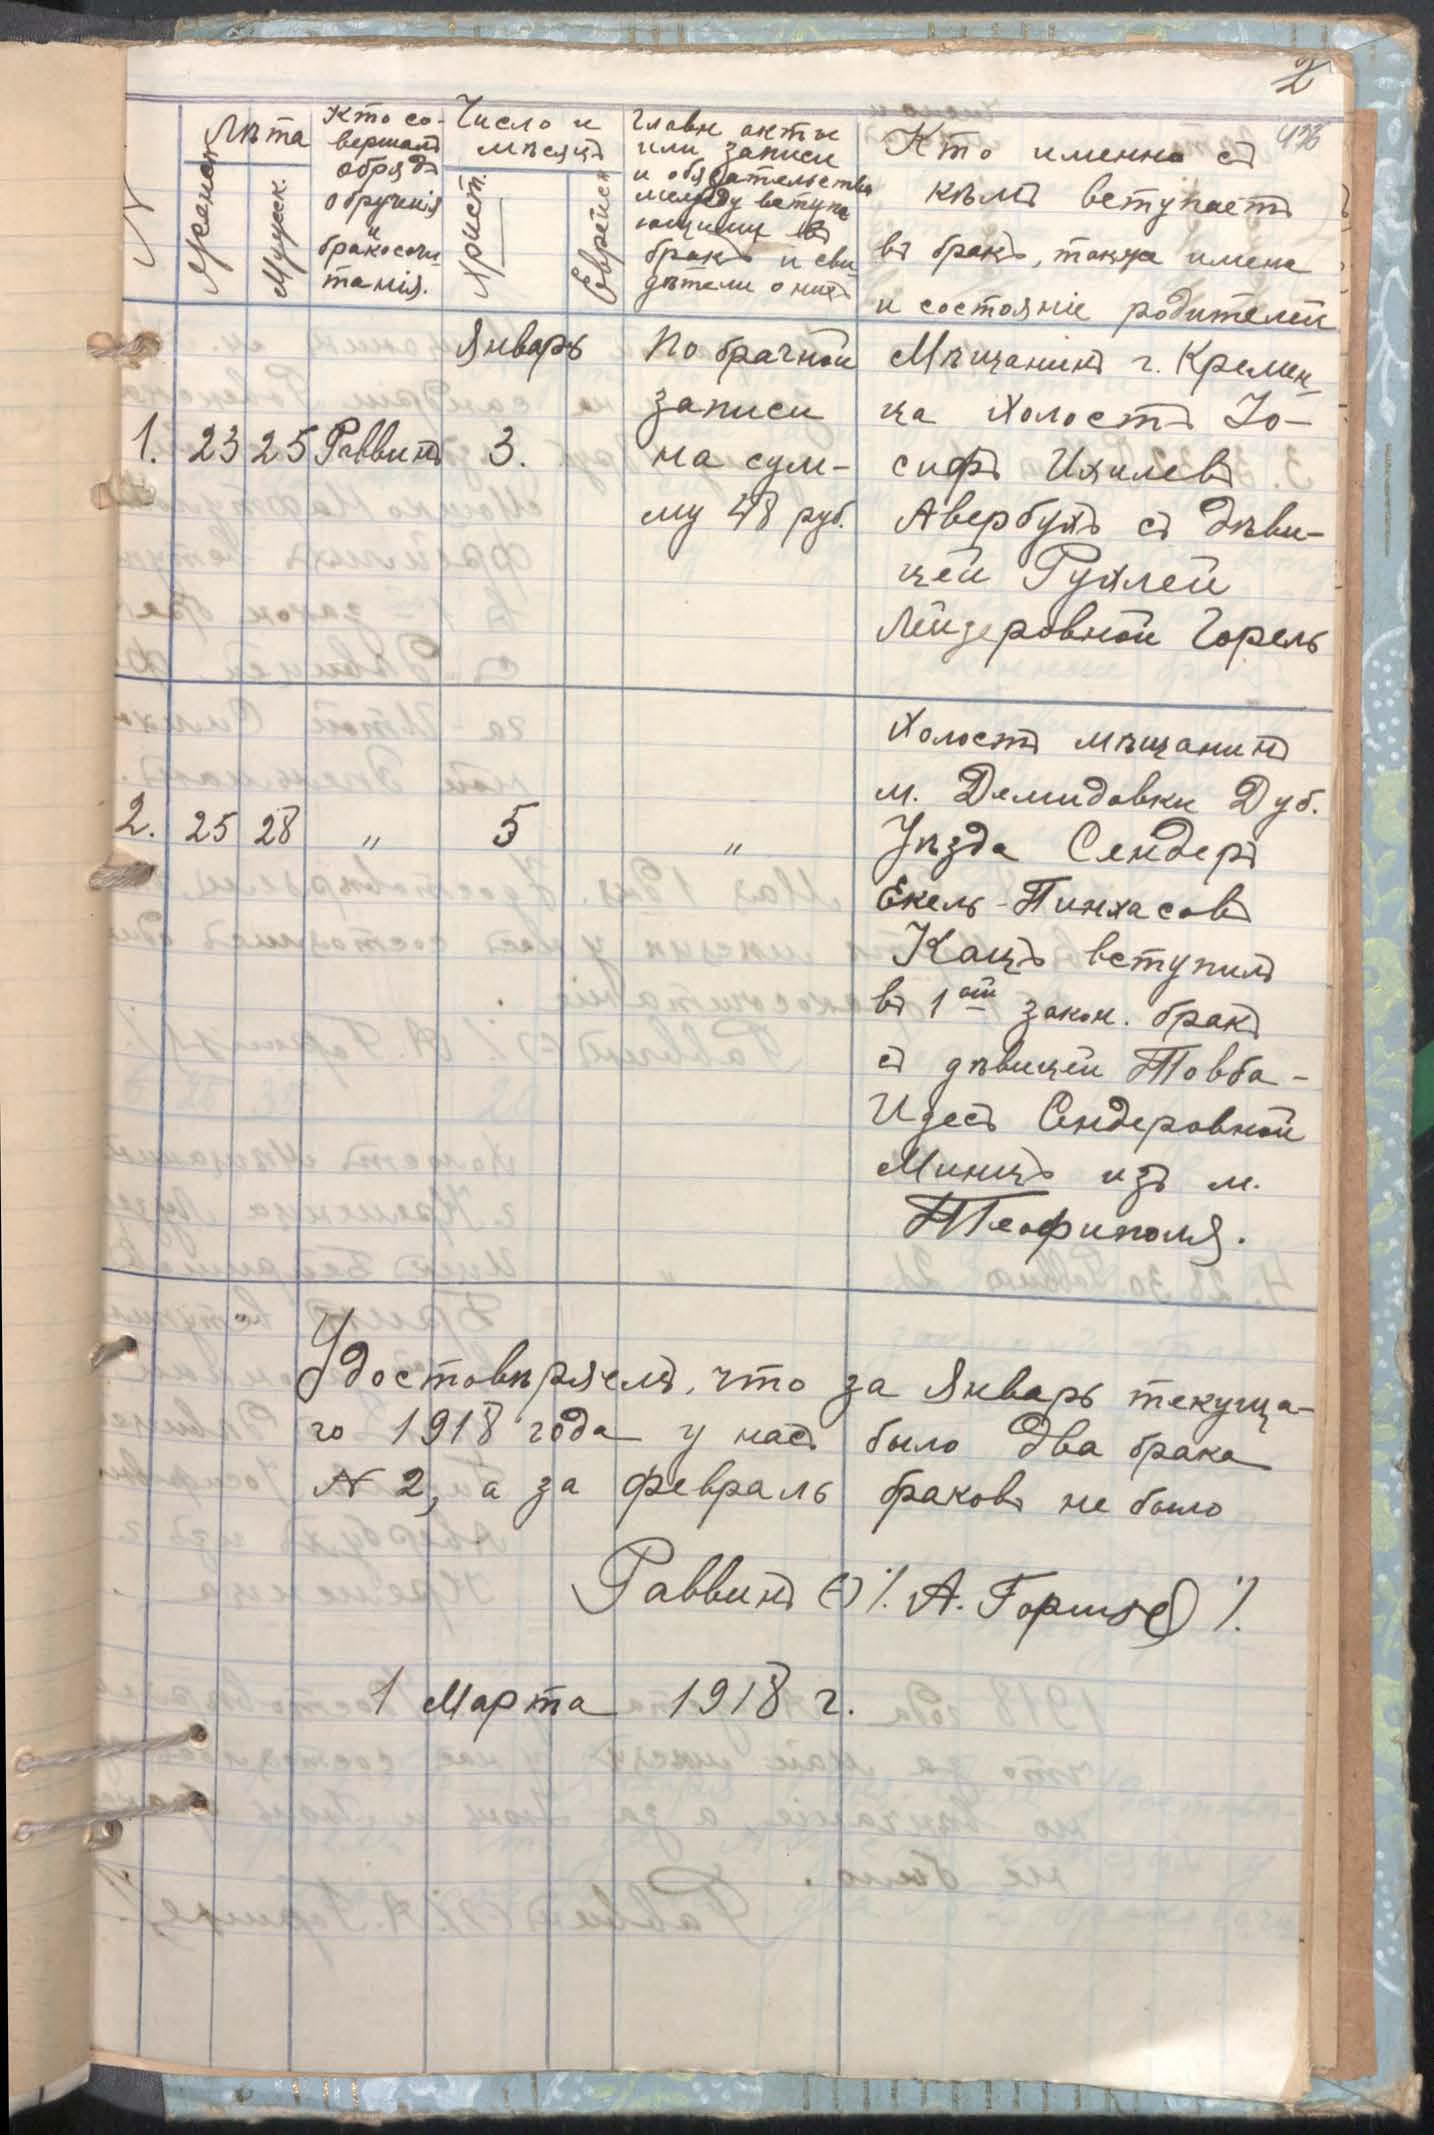 2
№
Лѣта
Женск.
Мужск.
Кто со-
вершалъ
обрядъ
обрученія
и
бракосоче-
танія.
Число и
мѣсяцъ
Христ.
Еврейск.
Главн акты
или записи
и обязательства
между вступа
ющими въ
бракъ и сви
дѣтели о нихъ
Кто именно съ
кѣмъ вступаетъ
въ бракъ, также имена
и состояніе родителей
Январь
1. 23 25 Раввинъ 3.
По брачной
записи
на сум-
му 48 руб.
Мѣщанинъ г. Кремен-
ца Холостъ Іо-
сифъ Ихилевъ
Авербухъ съ дѣви-
цей Рухлей
Лейзеровной Горель
2. 25 28 „ 5 „
Холостъ мѣщанинъ
м. Демидовки Дуб.
Уѣзда Сендеръ
Екель-Пинхасовъ
Кацъ вступилъ
въ 1ый закон. бракъ
съ дѣвицей Товба-
Идесъ Сендеровной
Минцъ изъ м.
Теофиполя.
Удостовѣряемъ, что за Январь текуща-
го 1918 года у насъ было два брака
№ 2, а за февраль браковъ не было
Раввинъ (-) /. А. Горинзе /.
1 Марта 1918 г.